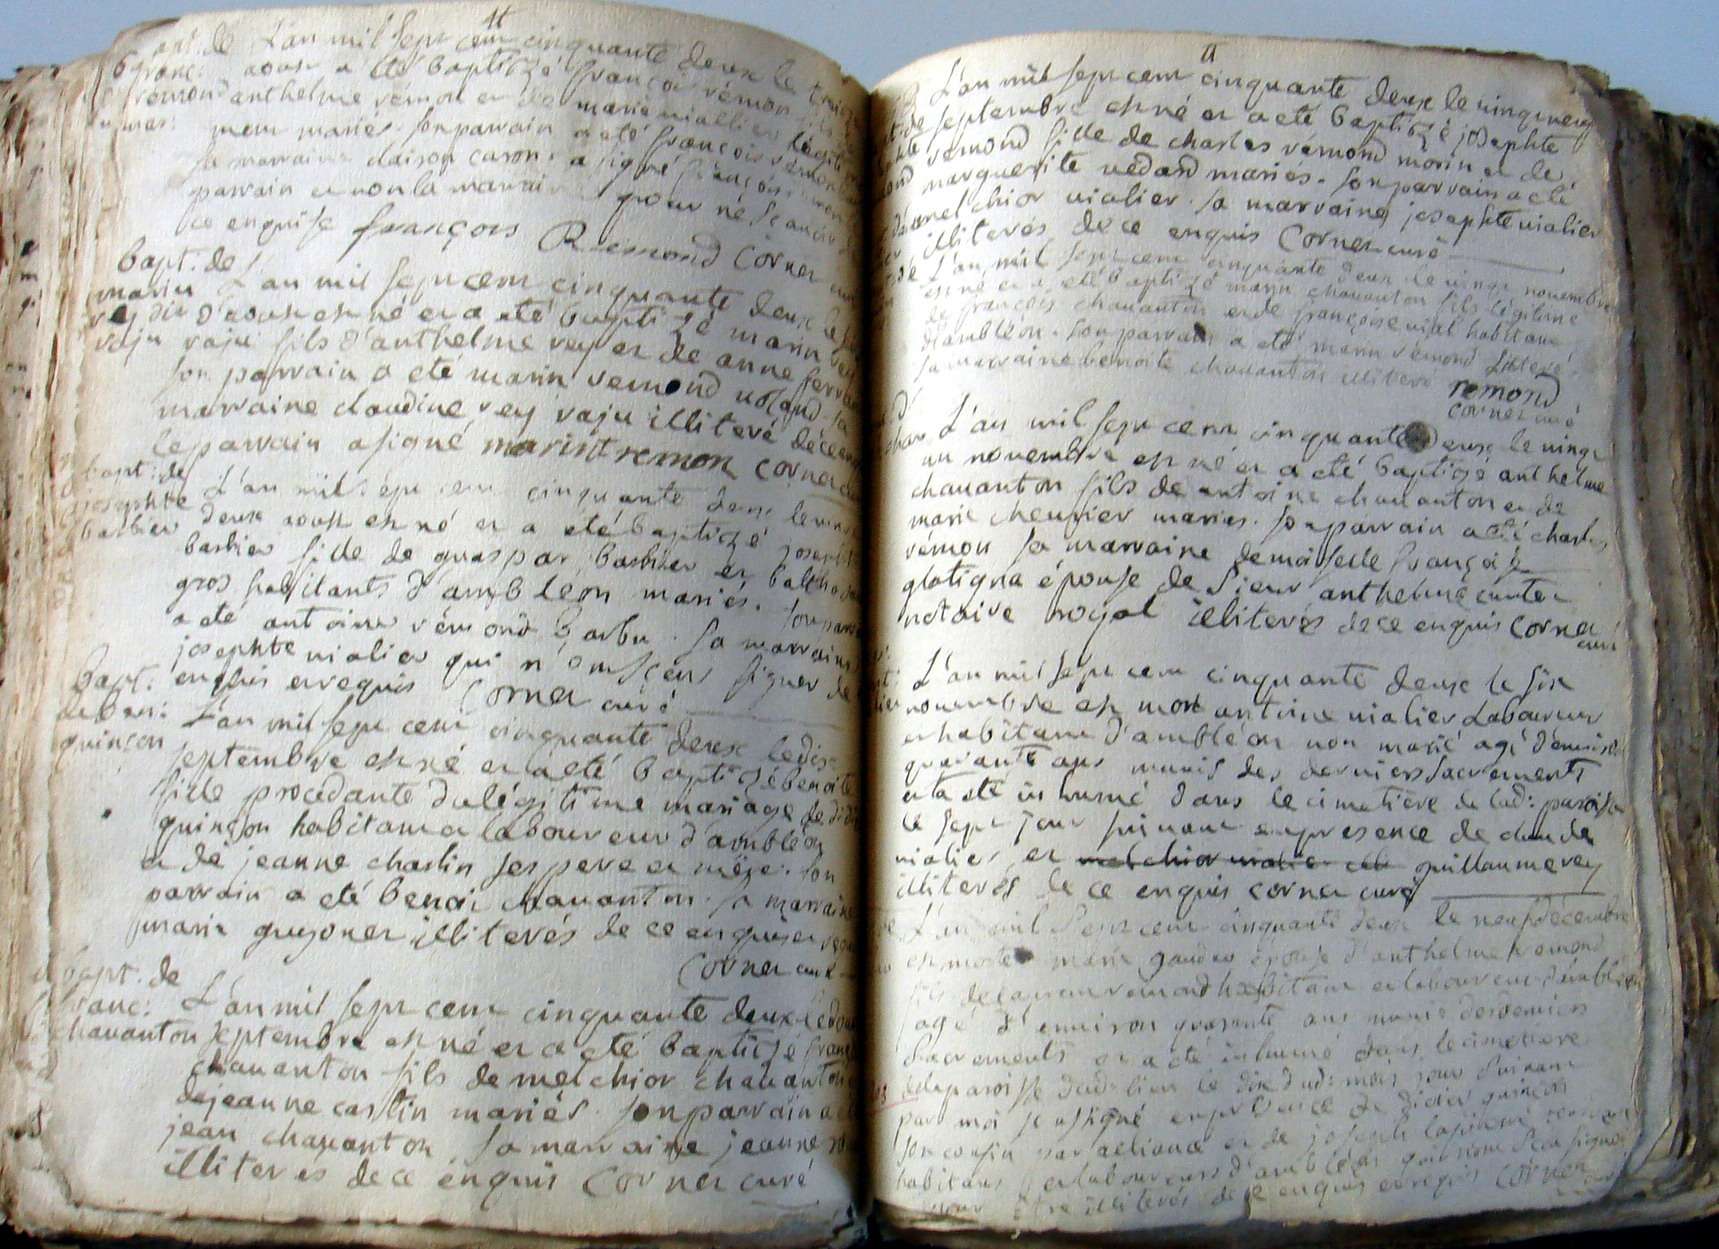 bapt: de L'an mil sept cent cinquante deux le
franc: aoust a été baptizé françois rémon fils
rémond anthelme rémon et de marie viallier
mariés. son parrain a été françois
sa marraine claison caron. a signé françois
parrain et non la marraine pour ne scavoir
ce enquise françois Remond Corner curé
bapt: de
marin L'an mil sept cent cinquante deux le
rey d'aoust est né et a été baptizé marin rey
raju raju fils d'anthelme rey et de anne
son parrain a été marin remond
marraine claudine rey raju illiteré de ce
le parrain a signé marint remon corner
bapt: de
josephte L'an mil sept cent cinquante deux le
barbier deux aoust est né et a été baptizé
barbier fille de guaspar barbier et
gros habitants d'ambleon mariés. son
a été antoine rémond barbu. sa marraine
josephte vialier qui n'ont sceu signer de
enquis et requis Corner curé
bapt:
de ben: L'an mil sept cent cinquante deux le dix
quinçon septembre est né et a été baptizé benoite
fille procédante du légitime mariage de
quinçon habitant et laboureur d'ambléon
et de jeanne charlin ses pere et mère. son
parrain a été benoi chauanton. sa marraine
marie guyoner illiterés de ce enquis et
Corner curé
bapt. de
franc: L'an mil sept cent cinquante deux le
chauanton septembre est né et a été baptizé
chauanton fils de melchior chauanton
de jeanne carlin mariés. son parrain a
jean chauanton sa marraine jeanne
illiterés de ce enquis Corner curé
L'an mil sept cent cinquante deux le vingt neuf
septembre est né et a été baptizé josephte
rémond fille de charles rémond morin et de
marguerite mariés. son parrain a été
melchior vialier. sa marraine josephte vialier
illiterés de ce enquis Corner curé
L'an mil sept cent cinquante deux le vingt novembre
est né et a été baptizé marin chauanton fils légitime
de françois chauanton et de françoise vial habitant
d'ambléon. son parrain a été marin rémond
sa marraine benoite chauanton illiteré remond
corner curé
L'an mil sept cent cinquante deux le vingt
un novembre est né et a été baptizé anthelme
chauanton fils de antoine chauanton et de
marie cheurier mariés. son parrain a été charles
rémon sa marraine demoiselle françoise
glatigna épouse de Sieur anthelme
notaire royal illiterés de ce enquis Corner
curé
L'an mil sept cent cinquante deux le six
nouembre est mort antoine vialier laboureur
et habitant d'ambléon non marié agé d'environ
quarante ans munis des derniers sacrements
et a été inhumé dans le cimetière de lad: paroisse
le sept jour suivant en presence de claude
vialier et guillaume rey
illiterés de ce enquis corner curé
L'an mil sept cent cinquante deux le neuf décembre
est morte marie épouse d'anthelme remond
fils de rémond habitant et laboureur d'ambléon
agé d'environ quarante ans munis des derniers
Sacrements et a été inhumé dans le cimetiere
de la paroisse dud: lieu le dix dud: mois jour suivant
par moi soussigné en présence de didier quinçon
son cousin par alliance et de joseph
habitans et laboureurs d'ambléon qui n'ont sceu signer
pour être illiterés de ce enquis et requis Corner